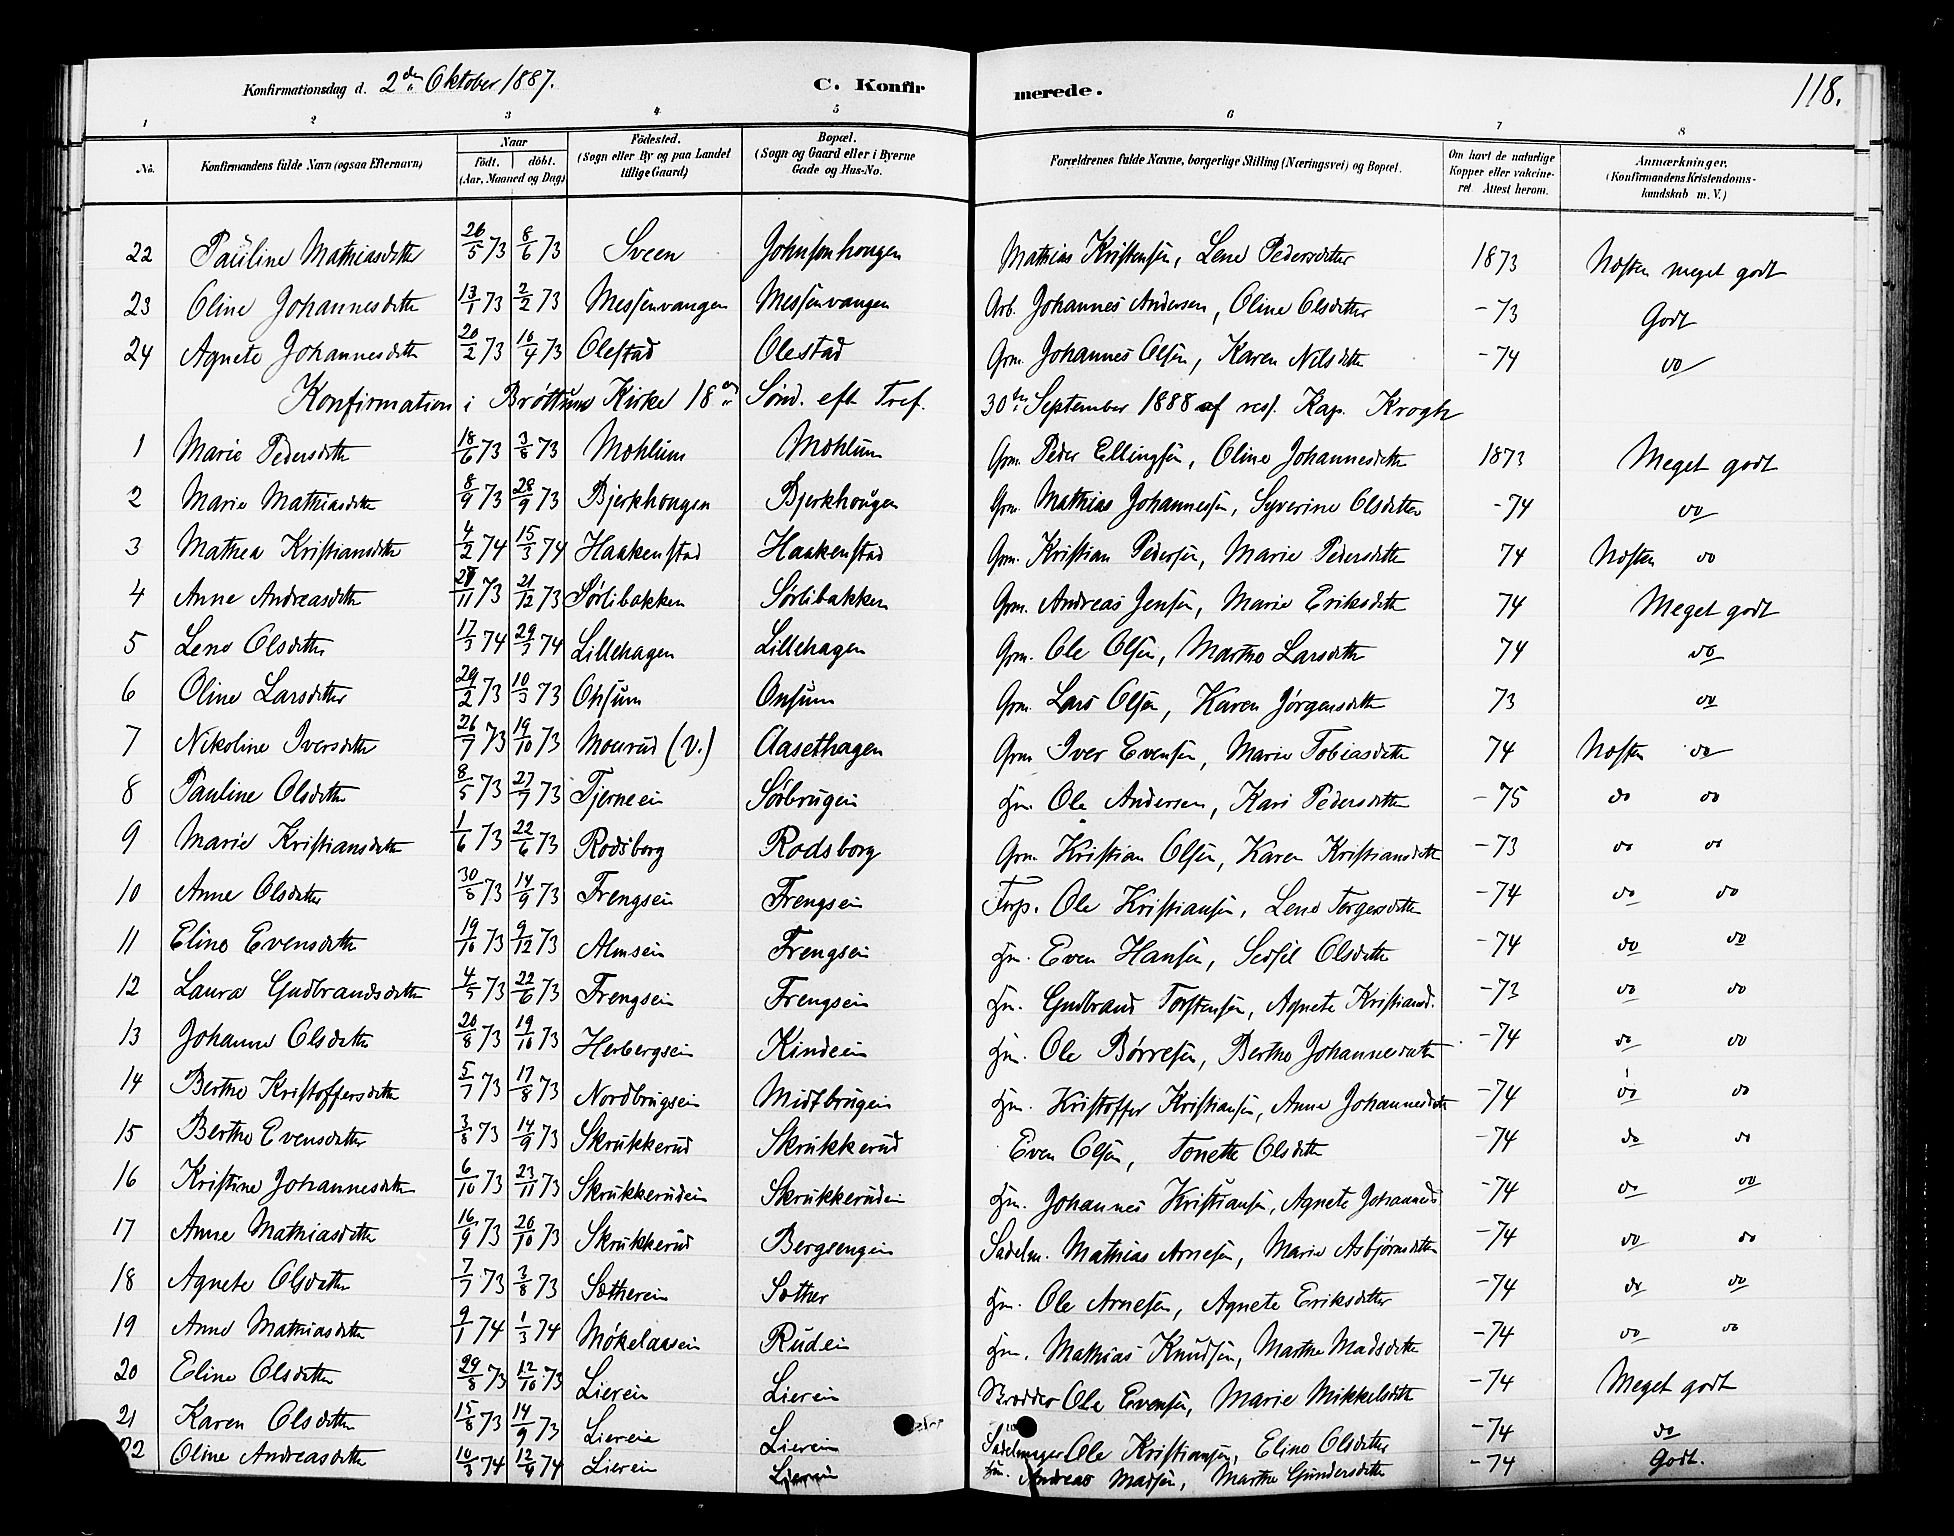 Konfirmationsdag d. 2den Oktober 1887. C. Konfirmerede. 118.
1 2 3 4 5 6 7 8
No. Konfirmandens fulde Navn (ogsaa Efternavn) Naar født. døbt. (Aar, Maaned og Dag) Fødested. (Sogn eller By og paa Landet tillige Gaard) Bopæl. (Sogn og Gaard eller i Byerne Gade og Hus-No. Forældrenes fulde Navne, borgerlige Stilling (Næringsvei) og Bopæl. Om havt de naturlige Kopper eller vakcineret Attest herom. Anmærkninger. (Konfirmandens Kristendomskundskab m. V.)
22 Pauline Mathiasdtter 26/5 73 8/6 73 Sveen Johnsenhougen Mathias Kristensen, Lene Pedersdtter 1873 Næsten meget godt
23 Oline Johannesdtter 13/1 73 2/2 73 Messenvangen Messenvangen Arb. Johannes Andersen, Oline Olsdtter -73 Godt
24 Agnete Johannesdtter 20/2 73 16/4 73 Olestad Olestad Grm. Johannes Olsen, Karen Nilsdtter -74 do
Konfirmation i Brøttum Kirke 18de Sønd. eft Tref. 30te September 1888 af resf. Kap. Krogh
1 Marie Pedersdtter 18/6 73 3/8 73 Mæhlum Mæhlum Grm. Peder Ellingsen, Oline Johannesdtter 1873 Meget godt
2 Marie Mathiasdtter 8/9 73 28/9 73 Bjerkhougen Bjerkhougen Grm. Mathias Johannessen, Syverine Olsdtter -74 do
3 Mathea Kristiansdtter 4/2 74 15/3 74 Haakenstad Haakenstad Grm. Kristian Pedersen, Marie Pedersdtter 74 Næsten do
4 Anne Andreasdtter 27/11 73 21/12 73 Sørlibakken Sørlibakken Grm. Andreas Jensen, Marie Eriksdtter 74 Meget godt
5 Lene Olsdtter 17/3 74 29/3 74 Lillehagen Lillehagen Grm. Ole Olsen, Marthe Larsdtter 74 do
6 Oline Larsdtter 29/2 73 10/3 73 Onsum Onsum Grm. Lars Olsen, Karen Jørgensdtter 73 do
7 Nikoline Iversdtter 26/7 73 19/10 73 Mourud (V.) Aasethagen Grm Iver Evensen, Marie Tobiasdtter 74 Næsten do
8 Pauline Olsdtter 8/5 73 27/7 73 Tjerneie Sørbrugein Hm. Ole Andersen, Kari Pedersdtter -75 do do
9 Marie Kristiansdtter 1/6 73 22/6 73 Rodsborg Rodsborg Grm Kristian Olsen, Karen Kristiansdtter -73 do do
10 Anne Olsdtter 30/8 73 14/9 73 Frengsein Frengsein Torp. Ole Kristiansen, Lene Torgersdtter -74 do do
11 Eline Evensdtter 19/10 73 9/12 73 Almsein Frengsein Hm. Even Hansen, Sedsil Olsdtter -74 do do
12 Laura Gudbrandsdtter 4/5 73 22/6 73 Frengsein Frengsein Hm. Gudbrand Torstensen, Agnete Kristiansd. -73 do do
13 Johanne Olsdtter 20/8 73 19/10 73 Herbergsein Kindein Hm. Ole Børresen, Berthe Johannesdtter -74 do do
14 Berthe Kristoffersdtter 5/7 73 17/8 73 Nordbrugsein Midtbrugein Hm. Kristoffer Kristiansen, Anne Johannesdtter -74 do do
15 Berthe Evensdtter 3/8 73 14/9 73 Skrukkerud Skrukkerud Even Olsen, Tonette Olsdtter -74 do do
16 Kristine Johannesdtter 6/10 73 23/11 73 Skrukkerudein Skrukkerudein Hm. Johannes Kristiansen, Agnete Johannesd -74 do do
17 Anne Mathiasdtter 16/9 73 26/10 73 Skrukkerud Bergsengein Sadelm. Mathias Arnesen, Marie Asbjørnsdtter -74 do do
18 Agnete Olsdtter 7/7 73 3/8 73 Sætherein Sæther Hm. Ole Arnesen, Agnete Eriksdtter -74 do do
19 Anne Mathiasdtter 9/1 74 1/3 74 Møkelaasein Rudein Hm. Mathias Knudsen, Marthe Madsdtter -74 do do
20 Eline Olsdtter 29/8 73 12/10 73 Lierein Lierein Ole Evensen, Marie Mikkelsdtter -74 Meget godt
21 Karen Olsdtter 15/8 73 14/9 73 Lierein Lierein Sadelmager Ole Kristiansen, Eline Olsdtter -74 do
22 Oline Andreasdtter 10/3 74 12/4 74 Lierein Lierein Hm. Andreas Madsen, Marthe Gundersdtter -74 Godt.